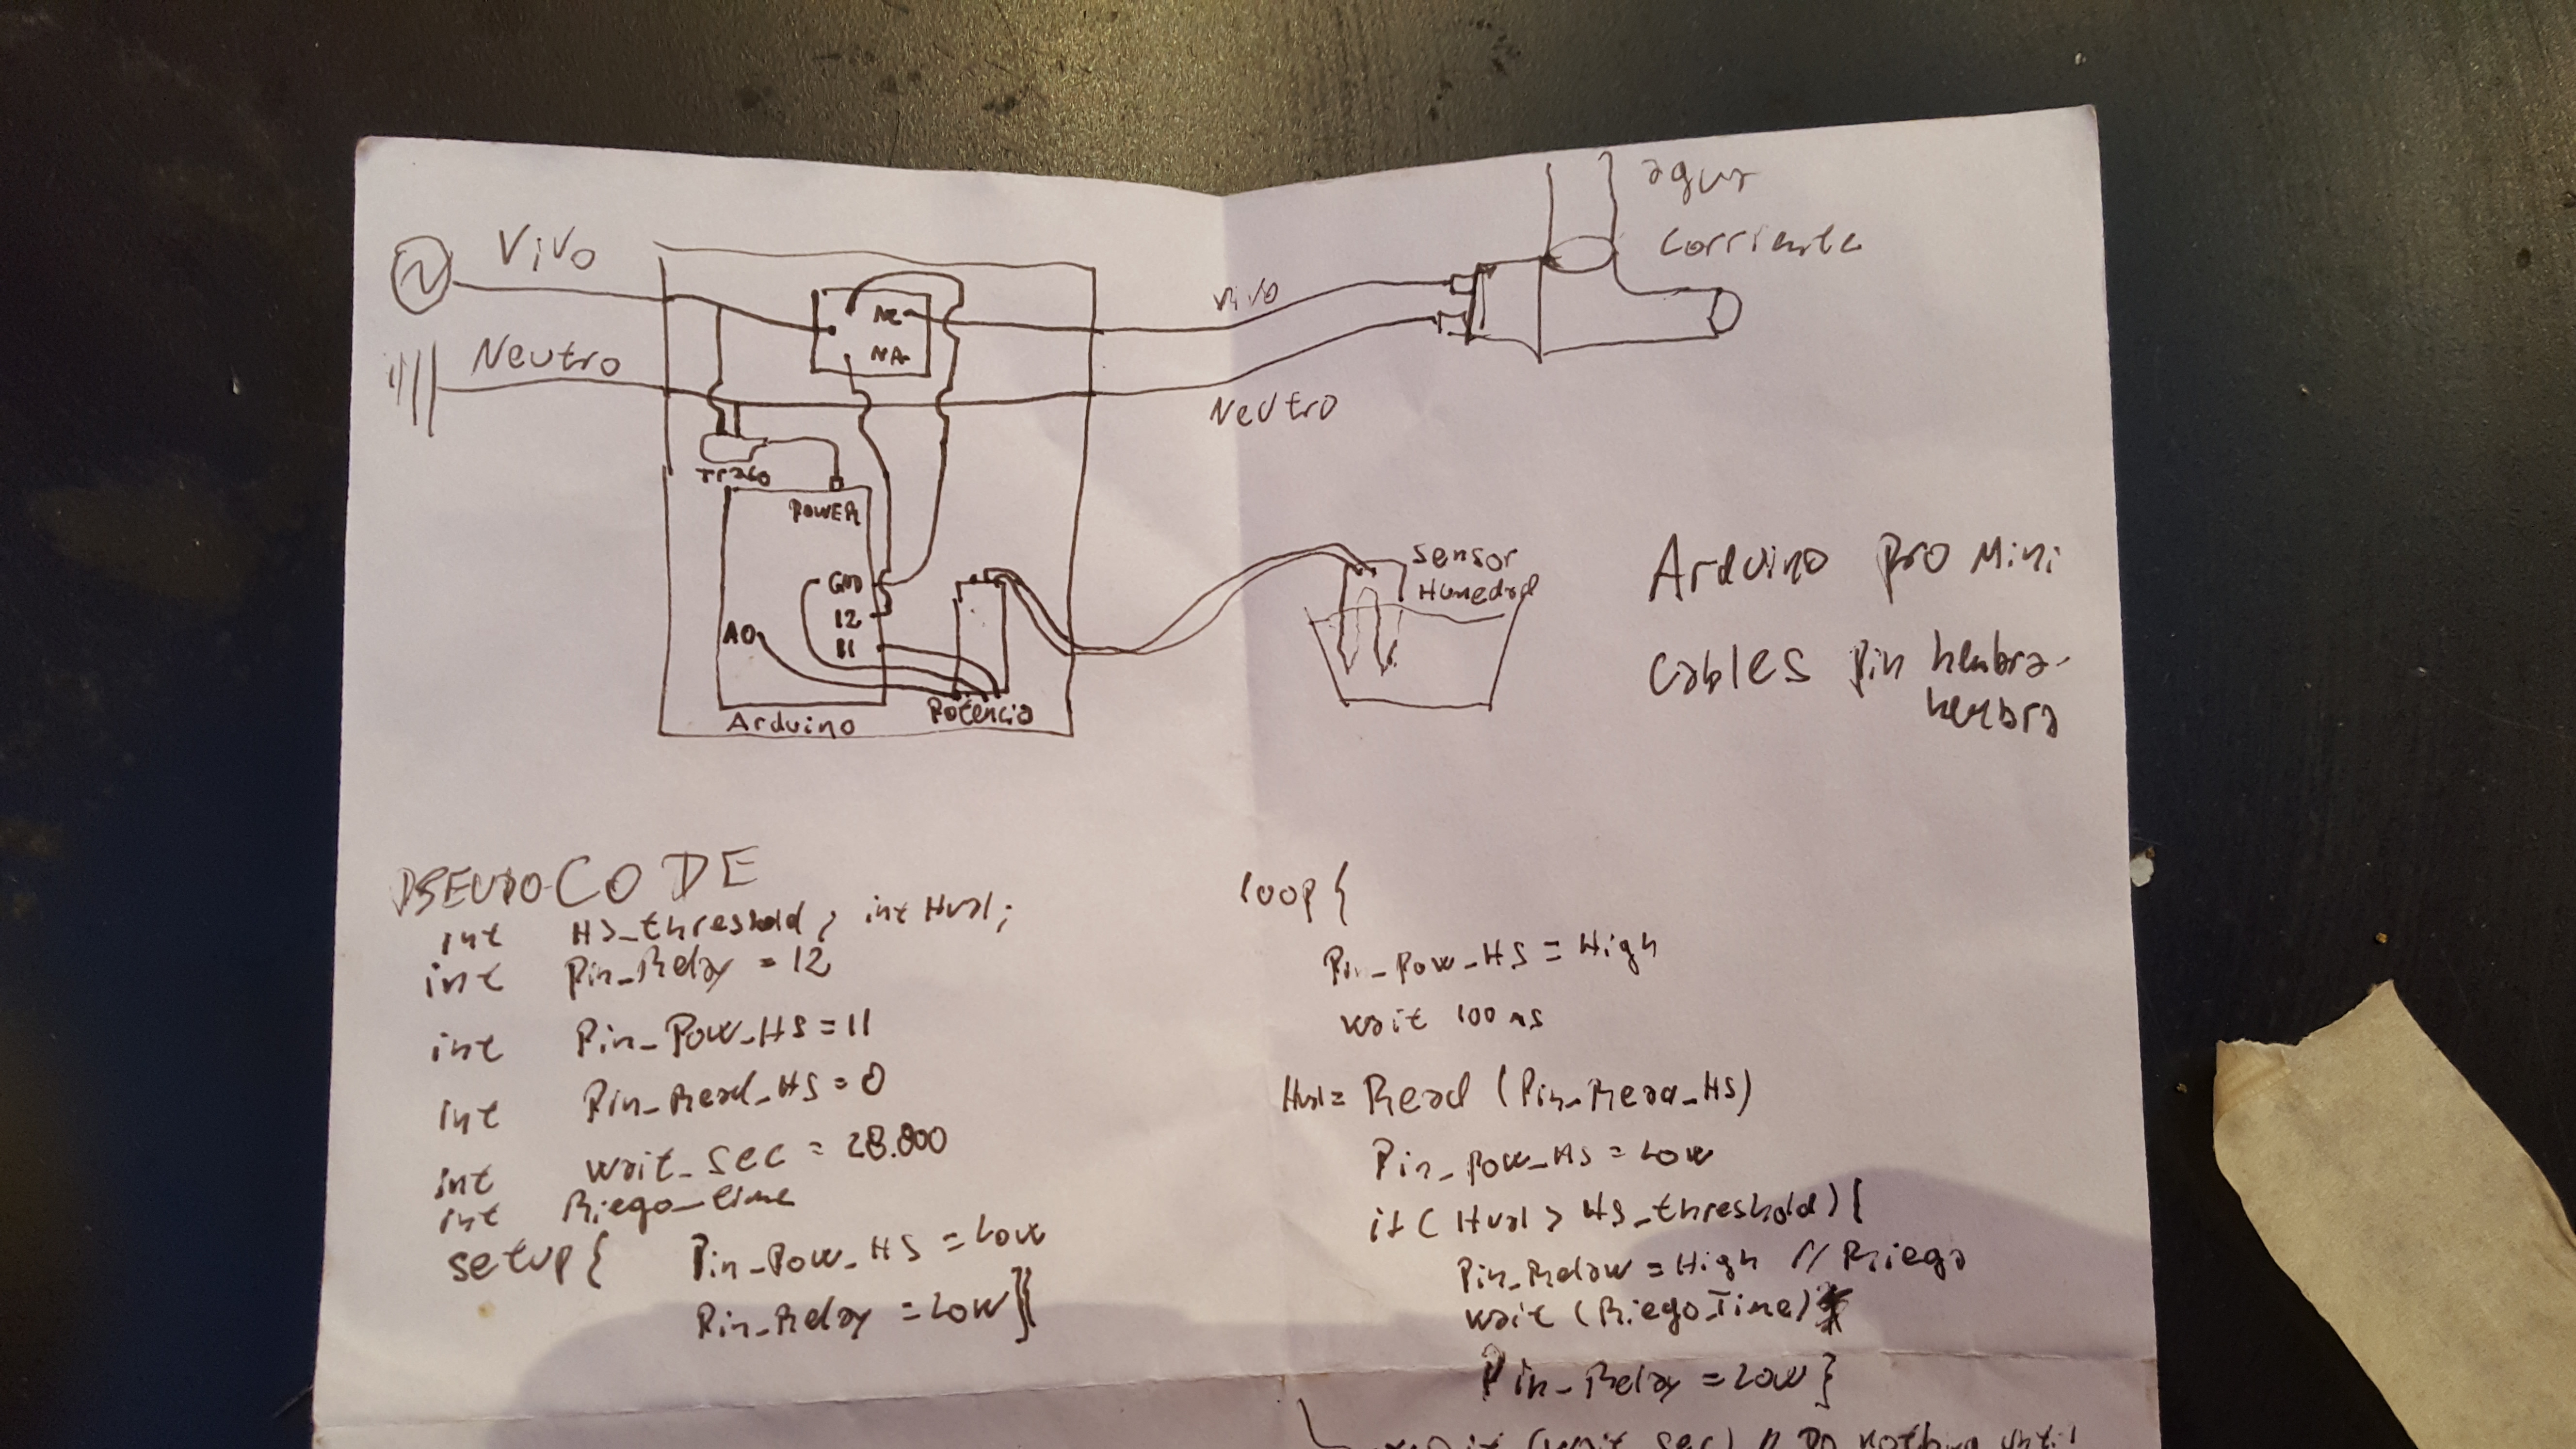 Vivo
Neutro
NC
NA
Trafo
POWER
GND
12
11
A0
Arduino
Potencia
Vivo
Neutro
agua
corriente
Sensor
Humedad
Arduino Pro Mini
Cables Pin hembra-
hembra
PSEUDO-CODE
int HS_threshold, int Hval;
int Pin_Relay = 12
int Pin_Pow_HS = 11
int Pin_Read_HS = 0
int wait_sec = 28.800
int Riego_time
setup{ Pin_Pow_HS = Low
Pin_Relay = Low}
loop {
Pin_Pow_HS = High
wait 100 ms
Hval = Read (Pin_Read_HS)
Pin_Pow_HS = Low
if ( Hval > HS_threshold) {
Pin_Relaw = High // Riego
wait (Riego_Time)
Pin_Relay = Low }
wait (wait_sec) // Do nothing until